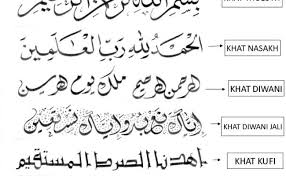 بسم الله الرحمن الرحيم
الحمد لله رب العالمين → KHAT NASAKH
الرحمن الرحيم ملك يوم الدين → KHAT DIWANI
إياك نعبد وإياك نستعين → KHAT DIWANI JALI
إهدنا الصرط المستقيم → KHAT KUFI